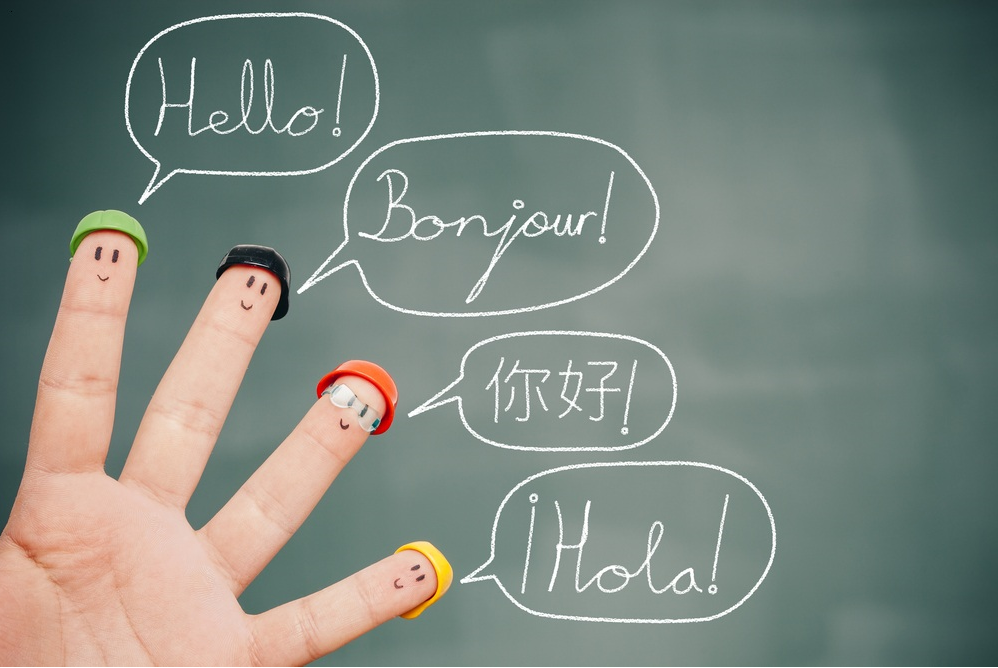 Hello!
Bonjour!
你好!
¡Hola!